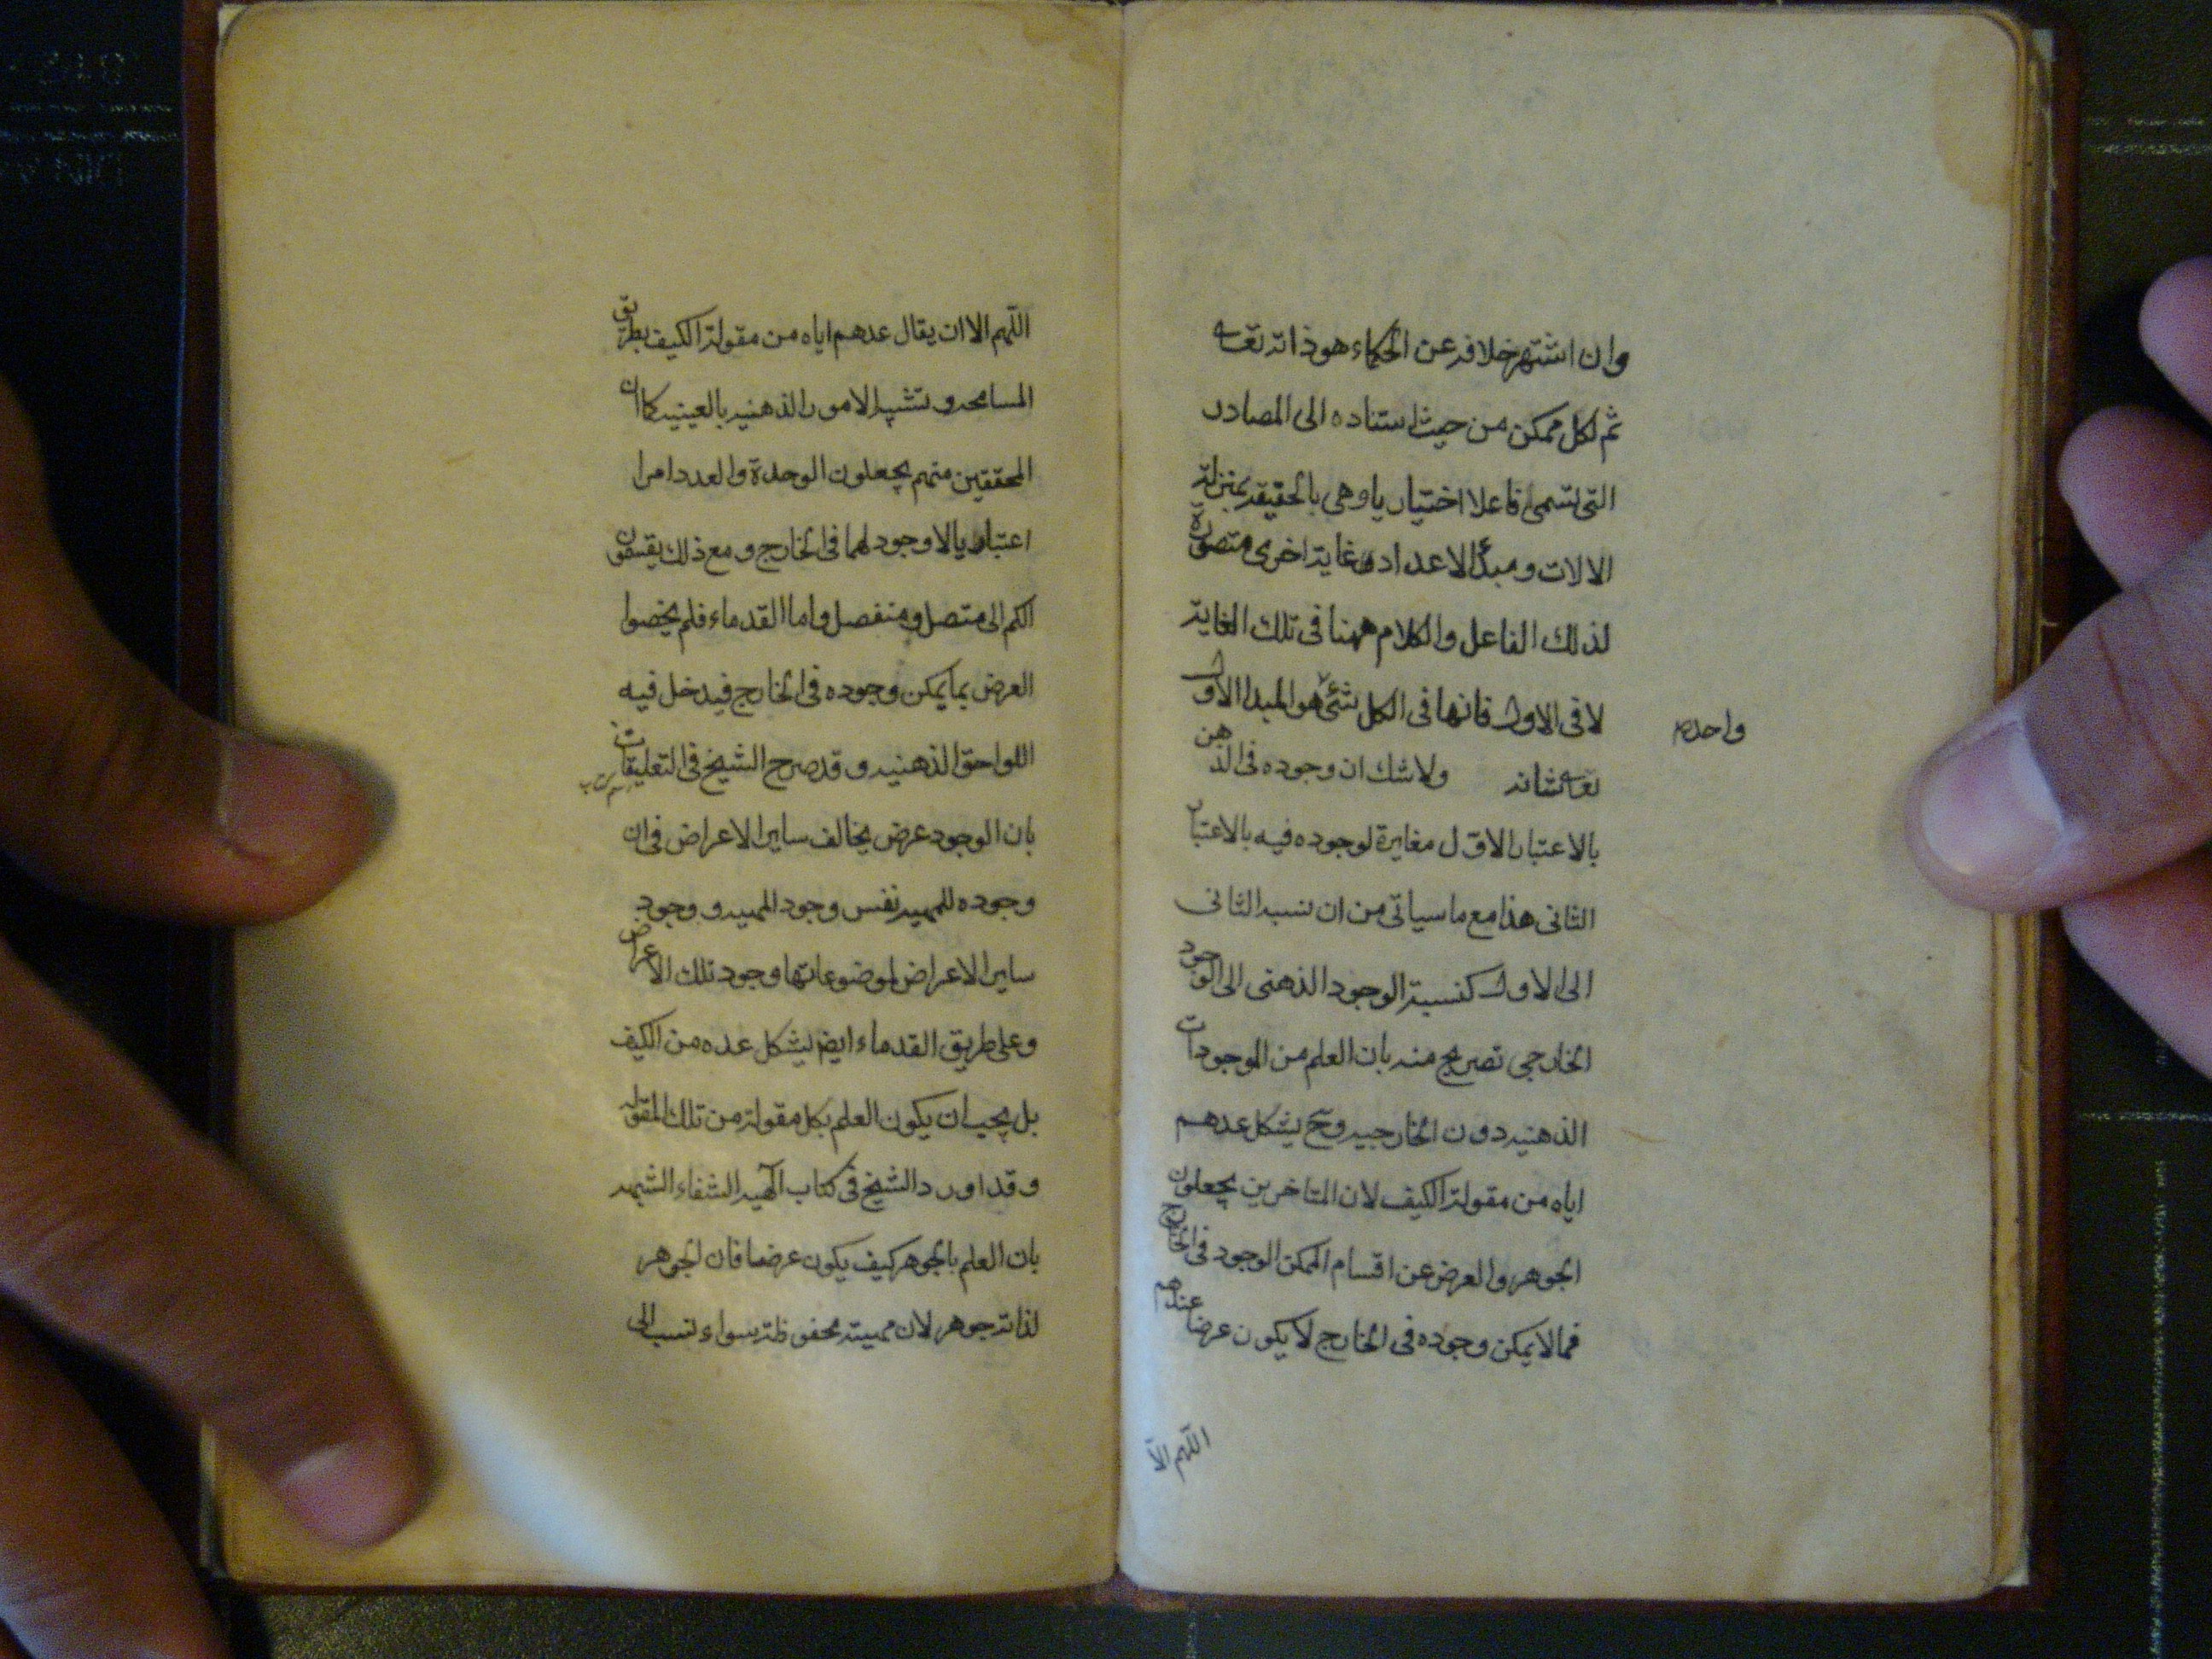 وان اشتهر خلافه عن الحكماء هو ذاته تعالى
ثم لكل ممكن من حيث استناده الى المصادر
التى تسمى فاعلا اختياريا وهى بالحقيقة بمنزلة
الالات ومبدأ الاعداد غاية اخرى متصورة
لذلك الفاعل والكلام ههنا فى تلك الغاية
لا فى الاول فانها فى الكل شئ هو المبدا الاول
واحد
تعالى شانه ولا شك ان وجوده فى الذهن
بالاعتبار الاول مغايرة لوجوده فيه بالاعتبار
الثانى هذا مع ما سياتى من ان نسبة الثانى
الى الاول كنسبة الوجود الذهنى الى الوجود
الخارجى تصريح منه بان العلم من الموجودات
الذهنية دون الخارجية وح يشكل عدهم
اياه من مقولة الكيف لان المتاخرين يجعلون
الجوهر والعرض عن اقسام الممكن الوجود فى الخارج
فما لا يمكن وجوده فى الخارج لا يكون عرضا عندهم
اللهم الا
اللهم الا ان يقال عدهم اياه من مقولة الكيف بطريق
المسامحة وتشبيه الامور الذهنية بالعينية كما ان
المحققين منهم يجعلون الوحدة والعدد امرا
اعتباريا لا وجود لهما فى الخارج ومع ذلك يقسمون
الكم الى متصل ومنفصل واما القدماء فلم يخصوا
العرض بما يمكن وجوده فى الخارج فيدخل فيه
اللواحق الذهنية وقد صرح الشيخ فى التعليقات
بان الوجود عرض يخالف ساير الاعراض فى ان
وجوده للمهية نفس وجود المهية ووجود
ساير الاعراض لموضوعاتها وجود تلك الاعراض
وعلى طريق القدماء ايضا يشكل عده من الكيف
بل يجب ان يكون العلم بكل مقولة من تلك المقولة
وقد اورد الشيخ فى كتاب الهية الشفاء الشبهة
بان العلم بالجوهر كيف يكون عرضا فان الجوهر
لذاته جوهر لان مهيته محفوظة سواء نسب الى